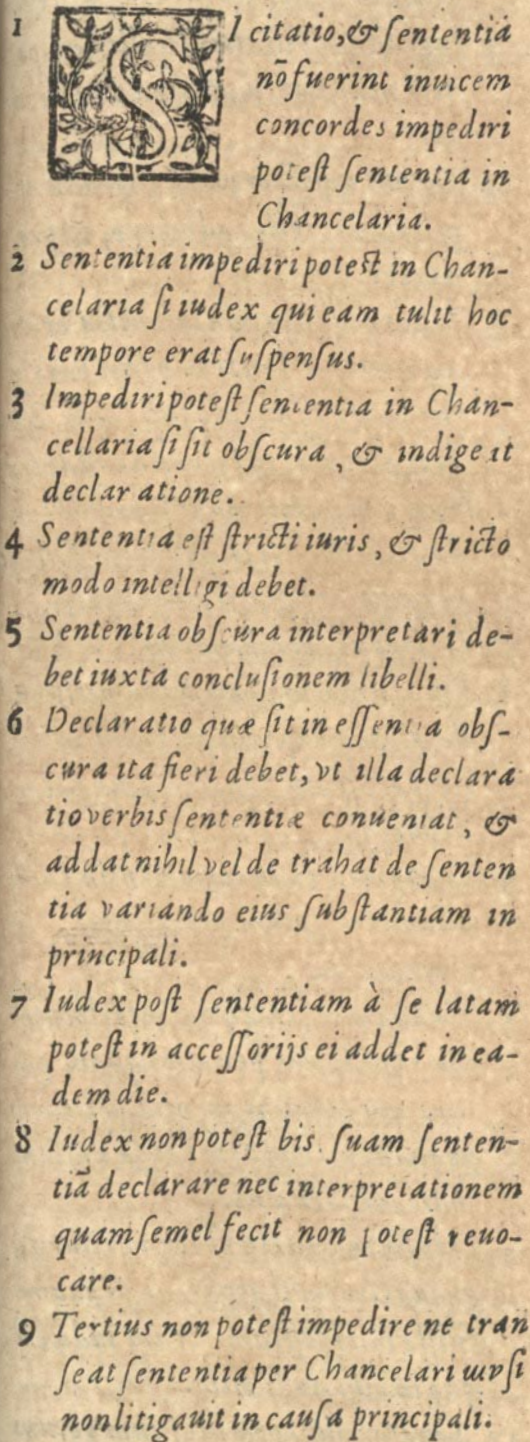 1 SI citatio, & ſententia
nõ fuerint inuicem
concordes impediri
poteſt ſententia in
Chancelaria.
2 Sententia impediri poteſt in Chan-
celaria ſi iudex qui eam tulit hoc
tempore erat ſuſpenſus.
3 Impediri poteſt ſententia in Chan-
cellaria ſi ſit obſcura, & indigeat
declaratione.
4 Sententia eſt ſtricti iuris, & ſtricto
modo intelligi debet.
5 Sententia obſcura interpretari de-
bet iuxta concluſionem libelli.
6 Declaratio quæ ſit in eſſentia obſ-
cura ita fieri debet, vt illa declara
tio verbis ſententiæ conueniat, &
addat nihil vel de trahat de ſenten
tia variando eius ſubſtantiam in
principali.
7 Iudex poſt ſententiam à ſe latam
poteſt in acceſſorijs ei addet in ea-
dem die.
8 Iudex non poteſt bis ſuam ſenten-
tiã declarare nec interpretationem
quam ſemel fecit non poteſt reuo-
care.
9 Tertius non poteſt impedire ne tran
ſeat ſententia per Chancelari ſi
non litigauit in cauſa principali.